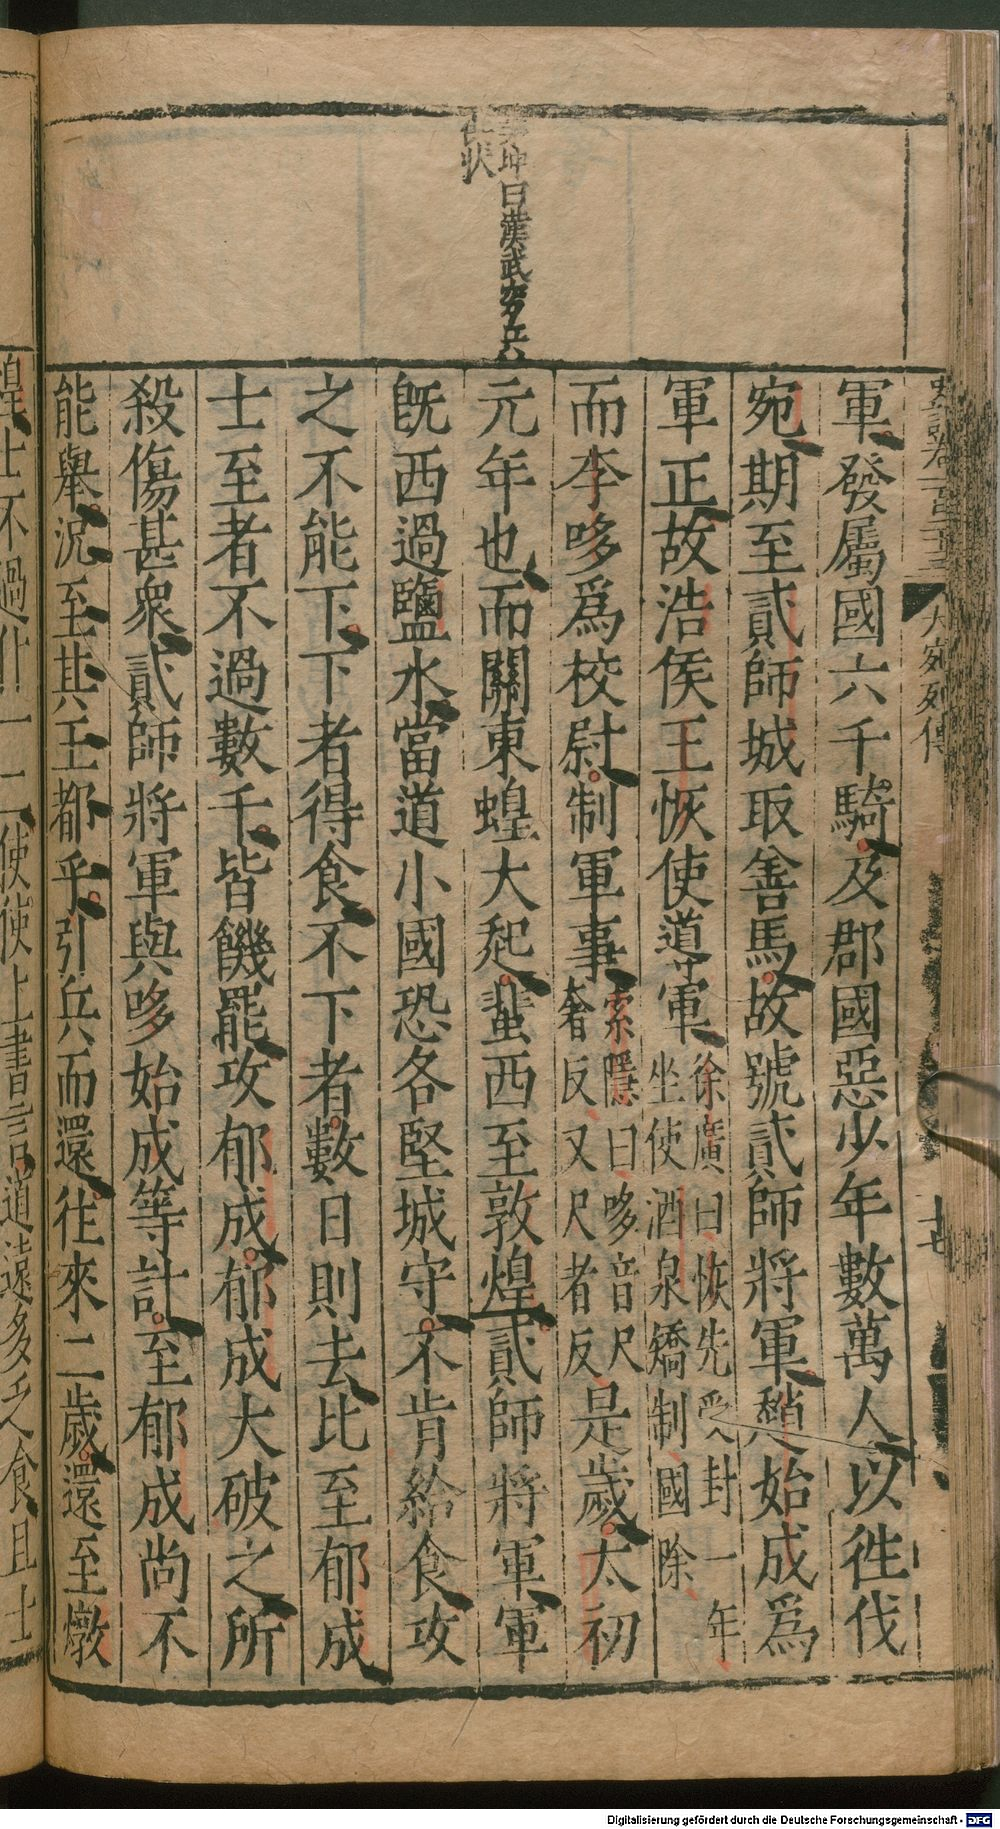 史記卷一百二十三
大宛列傳
十七
坤曰漢武窮兵
狀
軍發屬國六千騎及郡國惡少年數萬人以徃伐
宛期至貳師城取善馬故號貳師將軍趙始成爲
軍正故浩侯王恢使導軍徐廣曰恢先受封一年坐使酒泉矯制國除
而李哆爲校尉制軍事索隱曰哆音尺奢反又尺者反是歲太初
元年也而關東蝗大起蜚西至敦煌貳師將軍軍
旣西過鹽水當道小國恐各堅城守不肯給食攻
之不能下下者得食不下者數日則去比至郁成
士至者不過數千皆饑罷攻郁成郁成大破之所
殺傷甚衆貳師將軍與哆始成等計至郁成尚不
能舉況至其王都乎引兵而還徃來二歲還至燉
煌士不過什一二使使上書言道遠多乏食且士
Digitalisierung gefördert durch die Deutsche Forschungsgemeinschaft - DFG